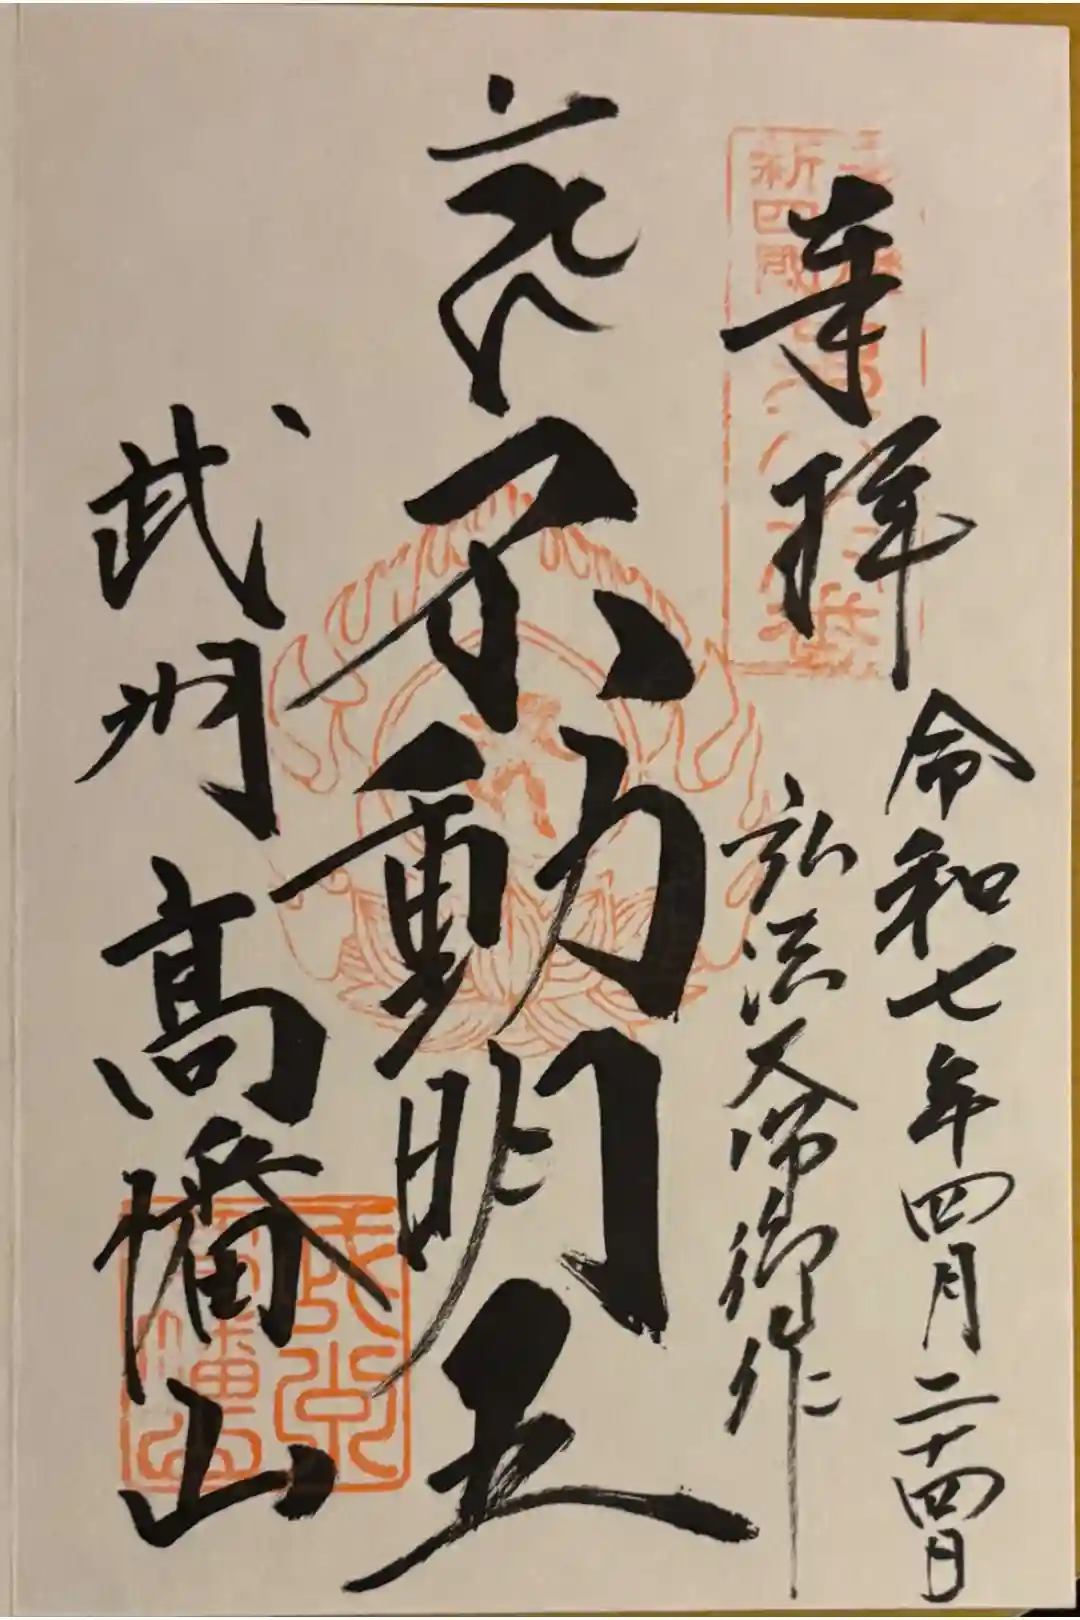 奉拝
令和七年四月二十四日
新四国
弘法大師御作
不動明王
武州
高幡山